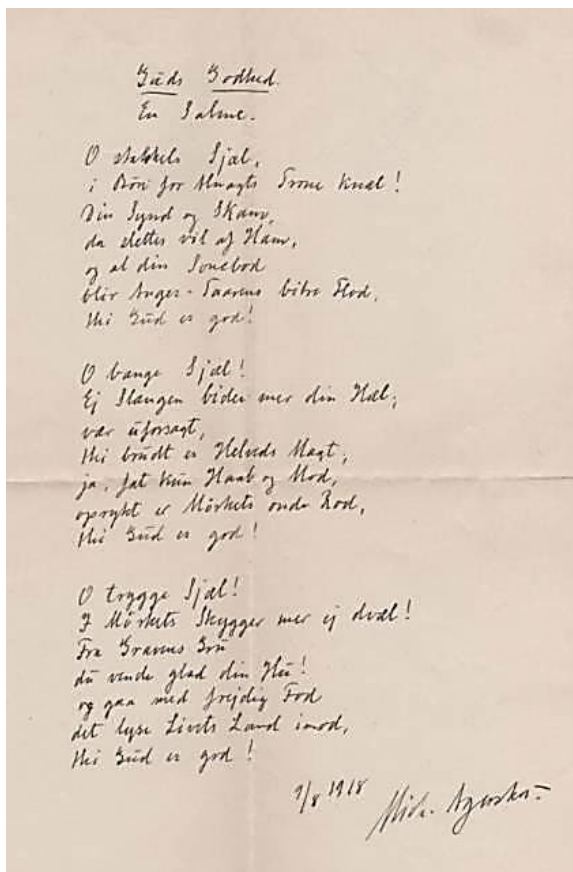 Guds Godhed.
En Salme.
O stakkels Sjæl,
i Bön for Almagts Trone knæl!
Din Synd og Skam,
da slettes vil af Ham,
og al din Sonebod
blir Anger-Taarens bitre Flod,
thi Gud er god!
O bange Sjæl!
Ej Slangen bider mer din Hæl;
vær uforsagt,
thi brudt er Helveds Magt;
ja, fat kun Haab og Mod,
oprykt er Mörkets onde Rod,
thi Gud er god!
O trygge Sjæl!
I Mörkets Skygger mer ej dvæl!
Fra Gravens Gru
du vende glad din Hu!
og gaa med frejdig Fod
det lyse Livets Land imod,
thi Gud er god!
9/8 1918
Mich. Agerskov